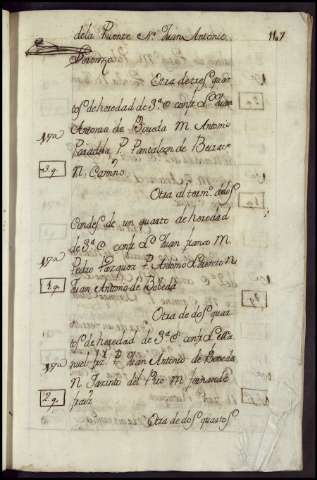 dela Puente N. Juan Antonio
147
Otra de tres quar
tos de heredad de 3ª confr. L.
17ª Antonia de Boveda M. Antonio
Paradela P. Pantaleon de
3 q. N. Camino
Otra al termº delos
Condes de un quarto de heredad
de 3ª confr. L. Juan franco M.
17ª Pedro Vazquez P. Antonio N.
1 q. Juan Antonio de Boveda
Otra de dos quar
tos de heredad de 3ª confr. L.
17ª P. Juan Antonio de Boveda
N. Jacinto del Rio M. fernando
2 q.
Otra de dos quartos